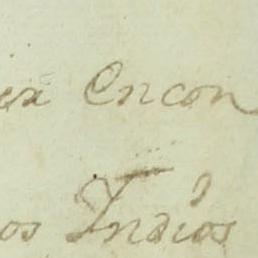 ea Encon
os Indios